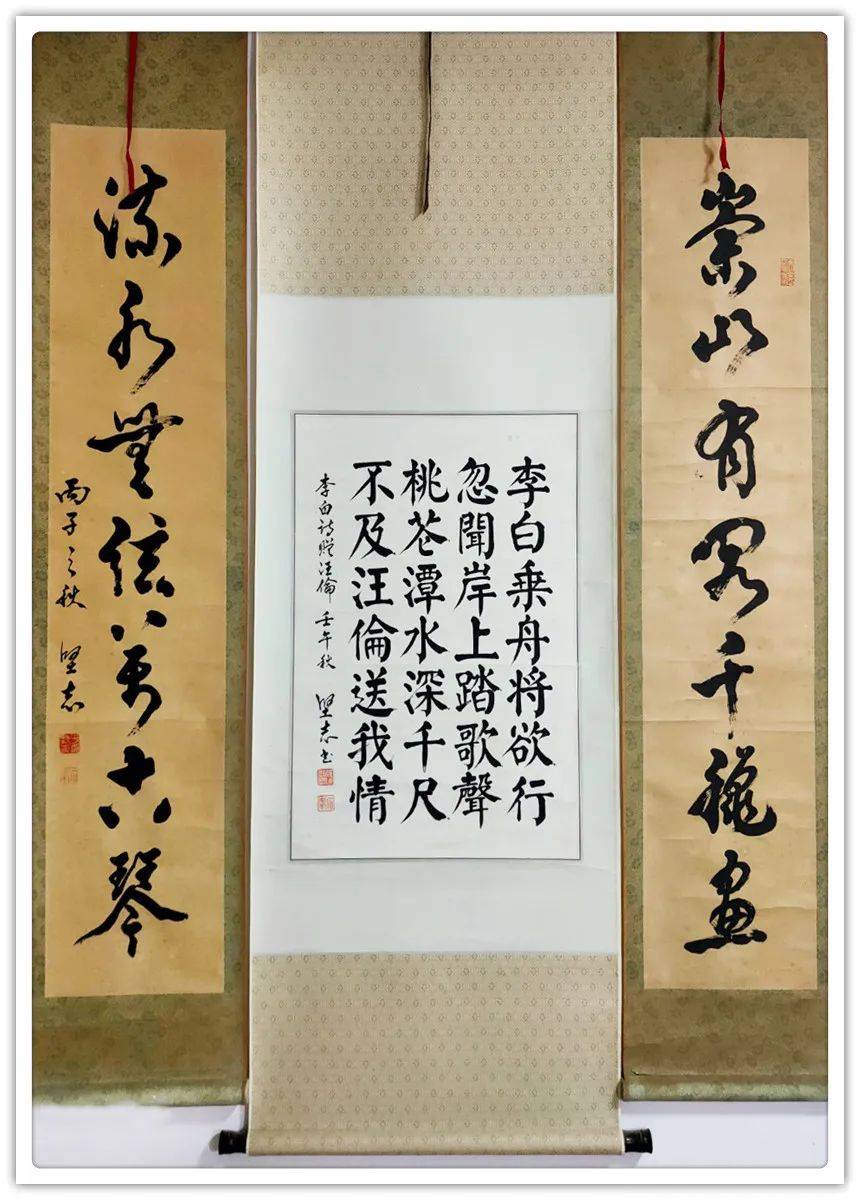 崇山有閣千龝畫
李白乗舟将欲行
忽聞岸上踏歌聲
桃花潭水深千尺
不及汪倫送我情
李白詩贈汪倫 壬午秋 坚志书
流水無弦萬古琴
丙子之秋 坚志